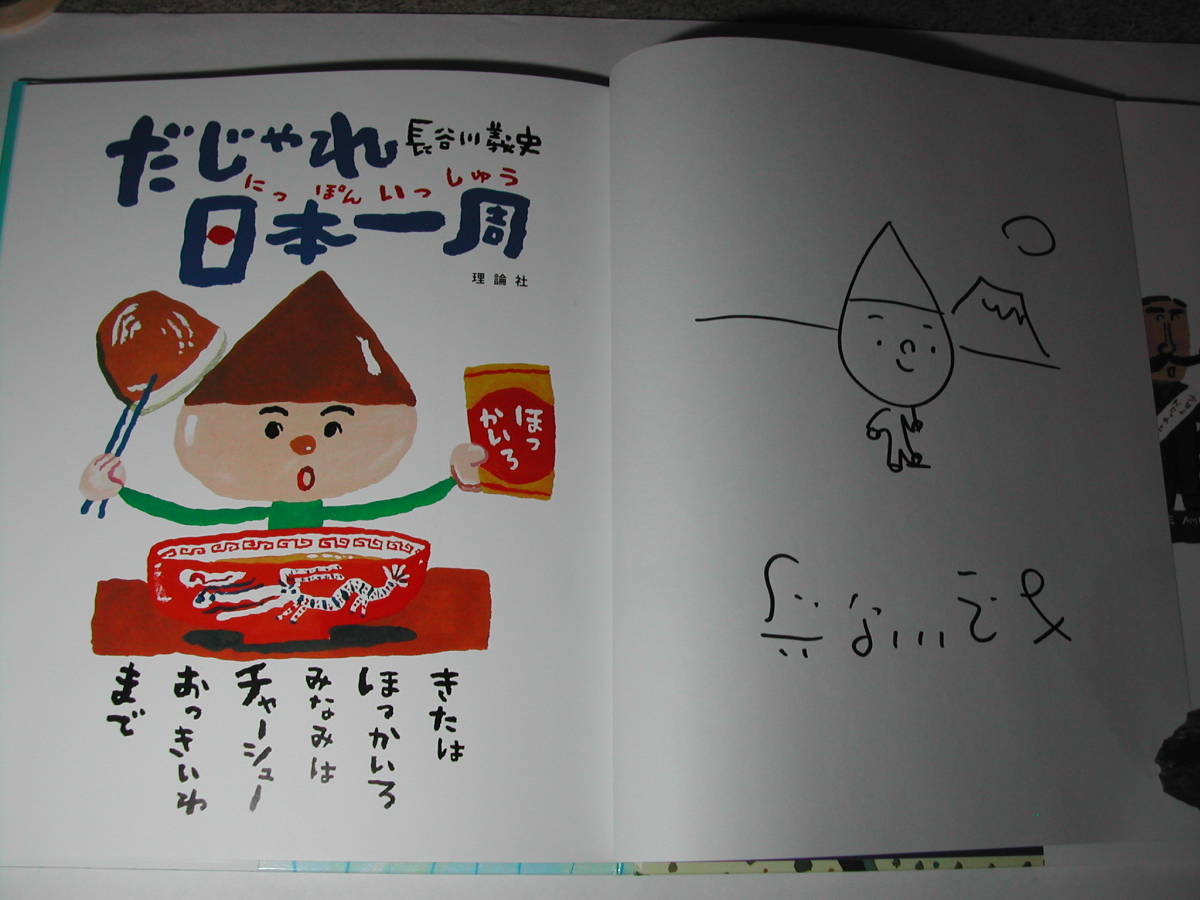 だじゃれ
長谷川義史
にっぽんいっしゅう
日本一周
理論社
ほっ
かいろ
きたは
ほっかいろ
みなみは
チャーシュー
おっきいわ
まで